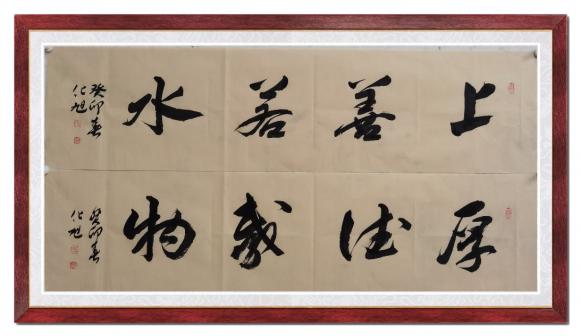 上善若水
癸卯春
化旭
厚德載物
癸卯春
化旭